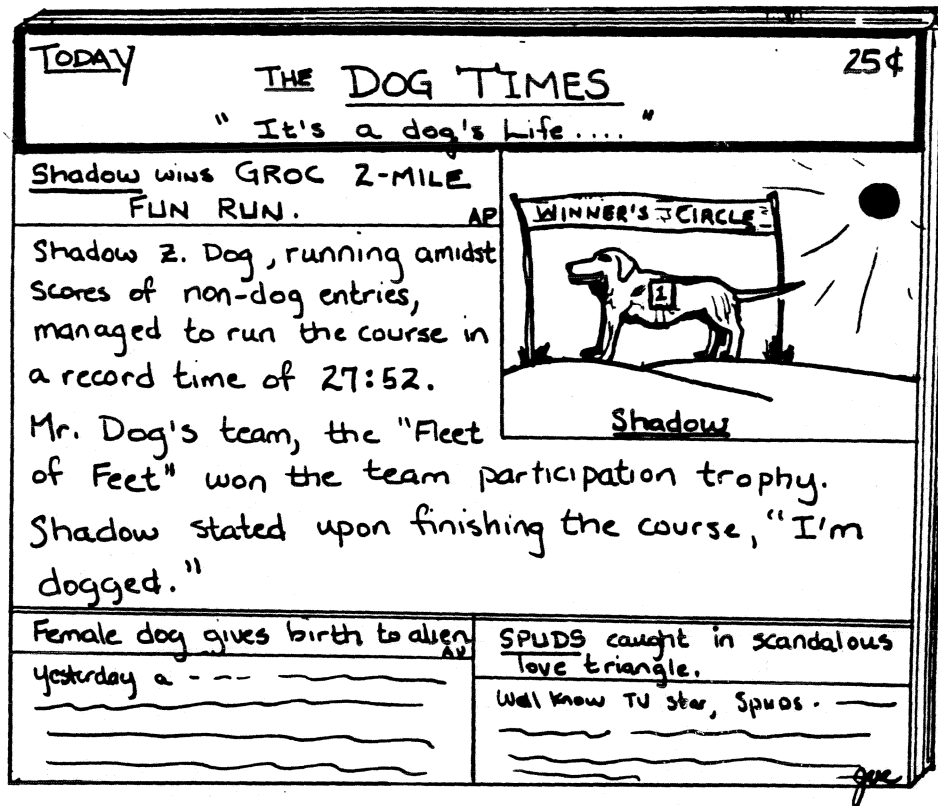 TODAY
25¢
THE DOG TIMES
"It's a dog's Life...."
Shadow wins GROC 2-MILE
FUN RUN.
AP
WINNER'S CIRCLE
1
Shadow
Shadow Z. Dog, running amidst
scores of non-dog entries,
managed to run the course in
a record time of 27:52.
Mr. Dog's team, the "Fleet
of Feet" won the team participation trophy.
Shadow stated upon finishing the course, "I'm
dogged."
Female dog gives birth to alien
yesterday a ----
SPUDS caught in scandalous
love triangle.
Well know TV star, Spuds.